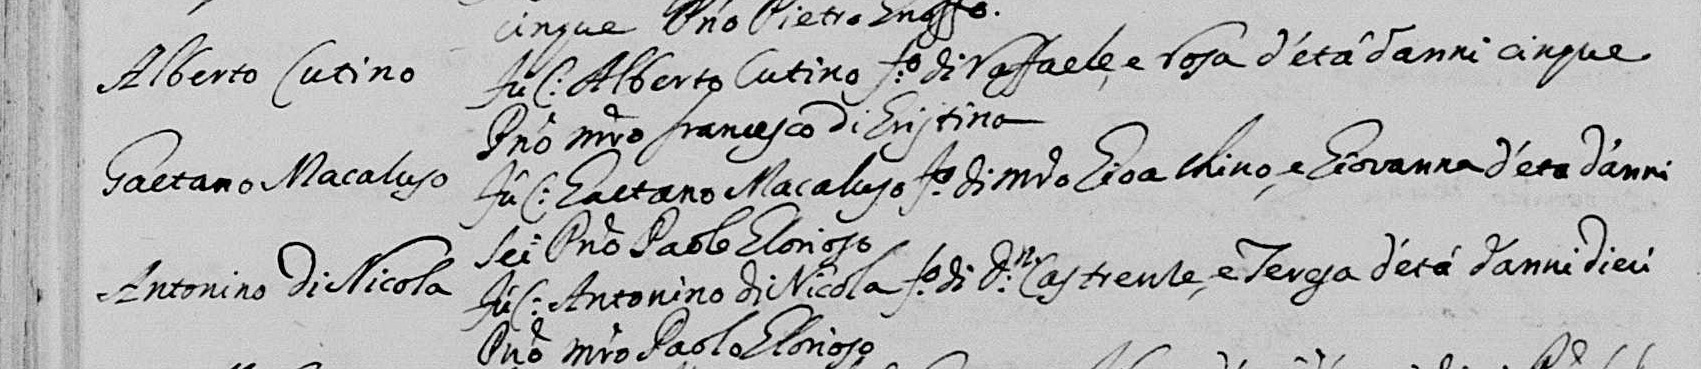 cinque Pno Pietro
Alberto Cutino
fù C: Alberto Cutino f.o di Raffaele, e rosa d'età d'anni cinque
Pno mro francesco di Cristina
Gaetano Macaluso
fù C: Gaetano Macaluso f.o di mro Gioachino, e Giovanna d'età d'anni
sei Pno Paolo Glorioso
Antonino di Nicola
fù C: Antonino di Nicola f.o di D.n Castrenle, e Teresa d'età d'anni dieci
Pno mro Paolo Glorioso